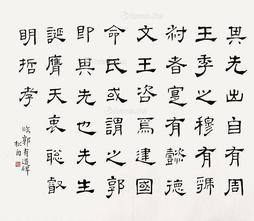 其先出自有周
王季之穆有虢
叔者寔有懿德
文王咨焉建國
命氏或謂之郭
即其先也先生
誕膺天衷聡叡
明哲孝
臨郭有道碑